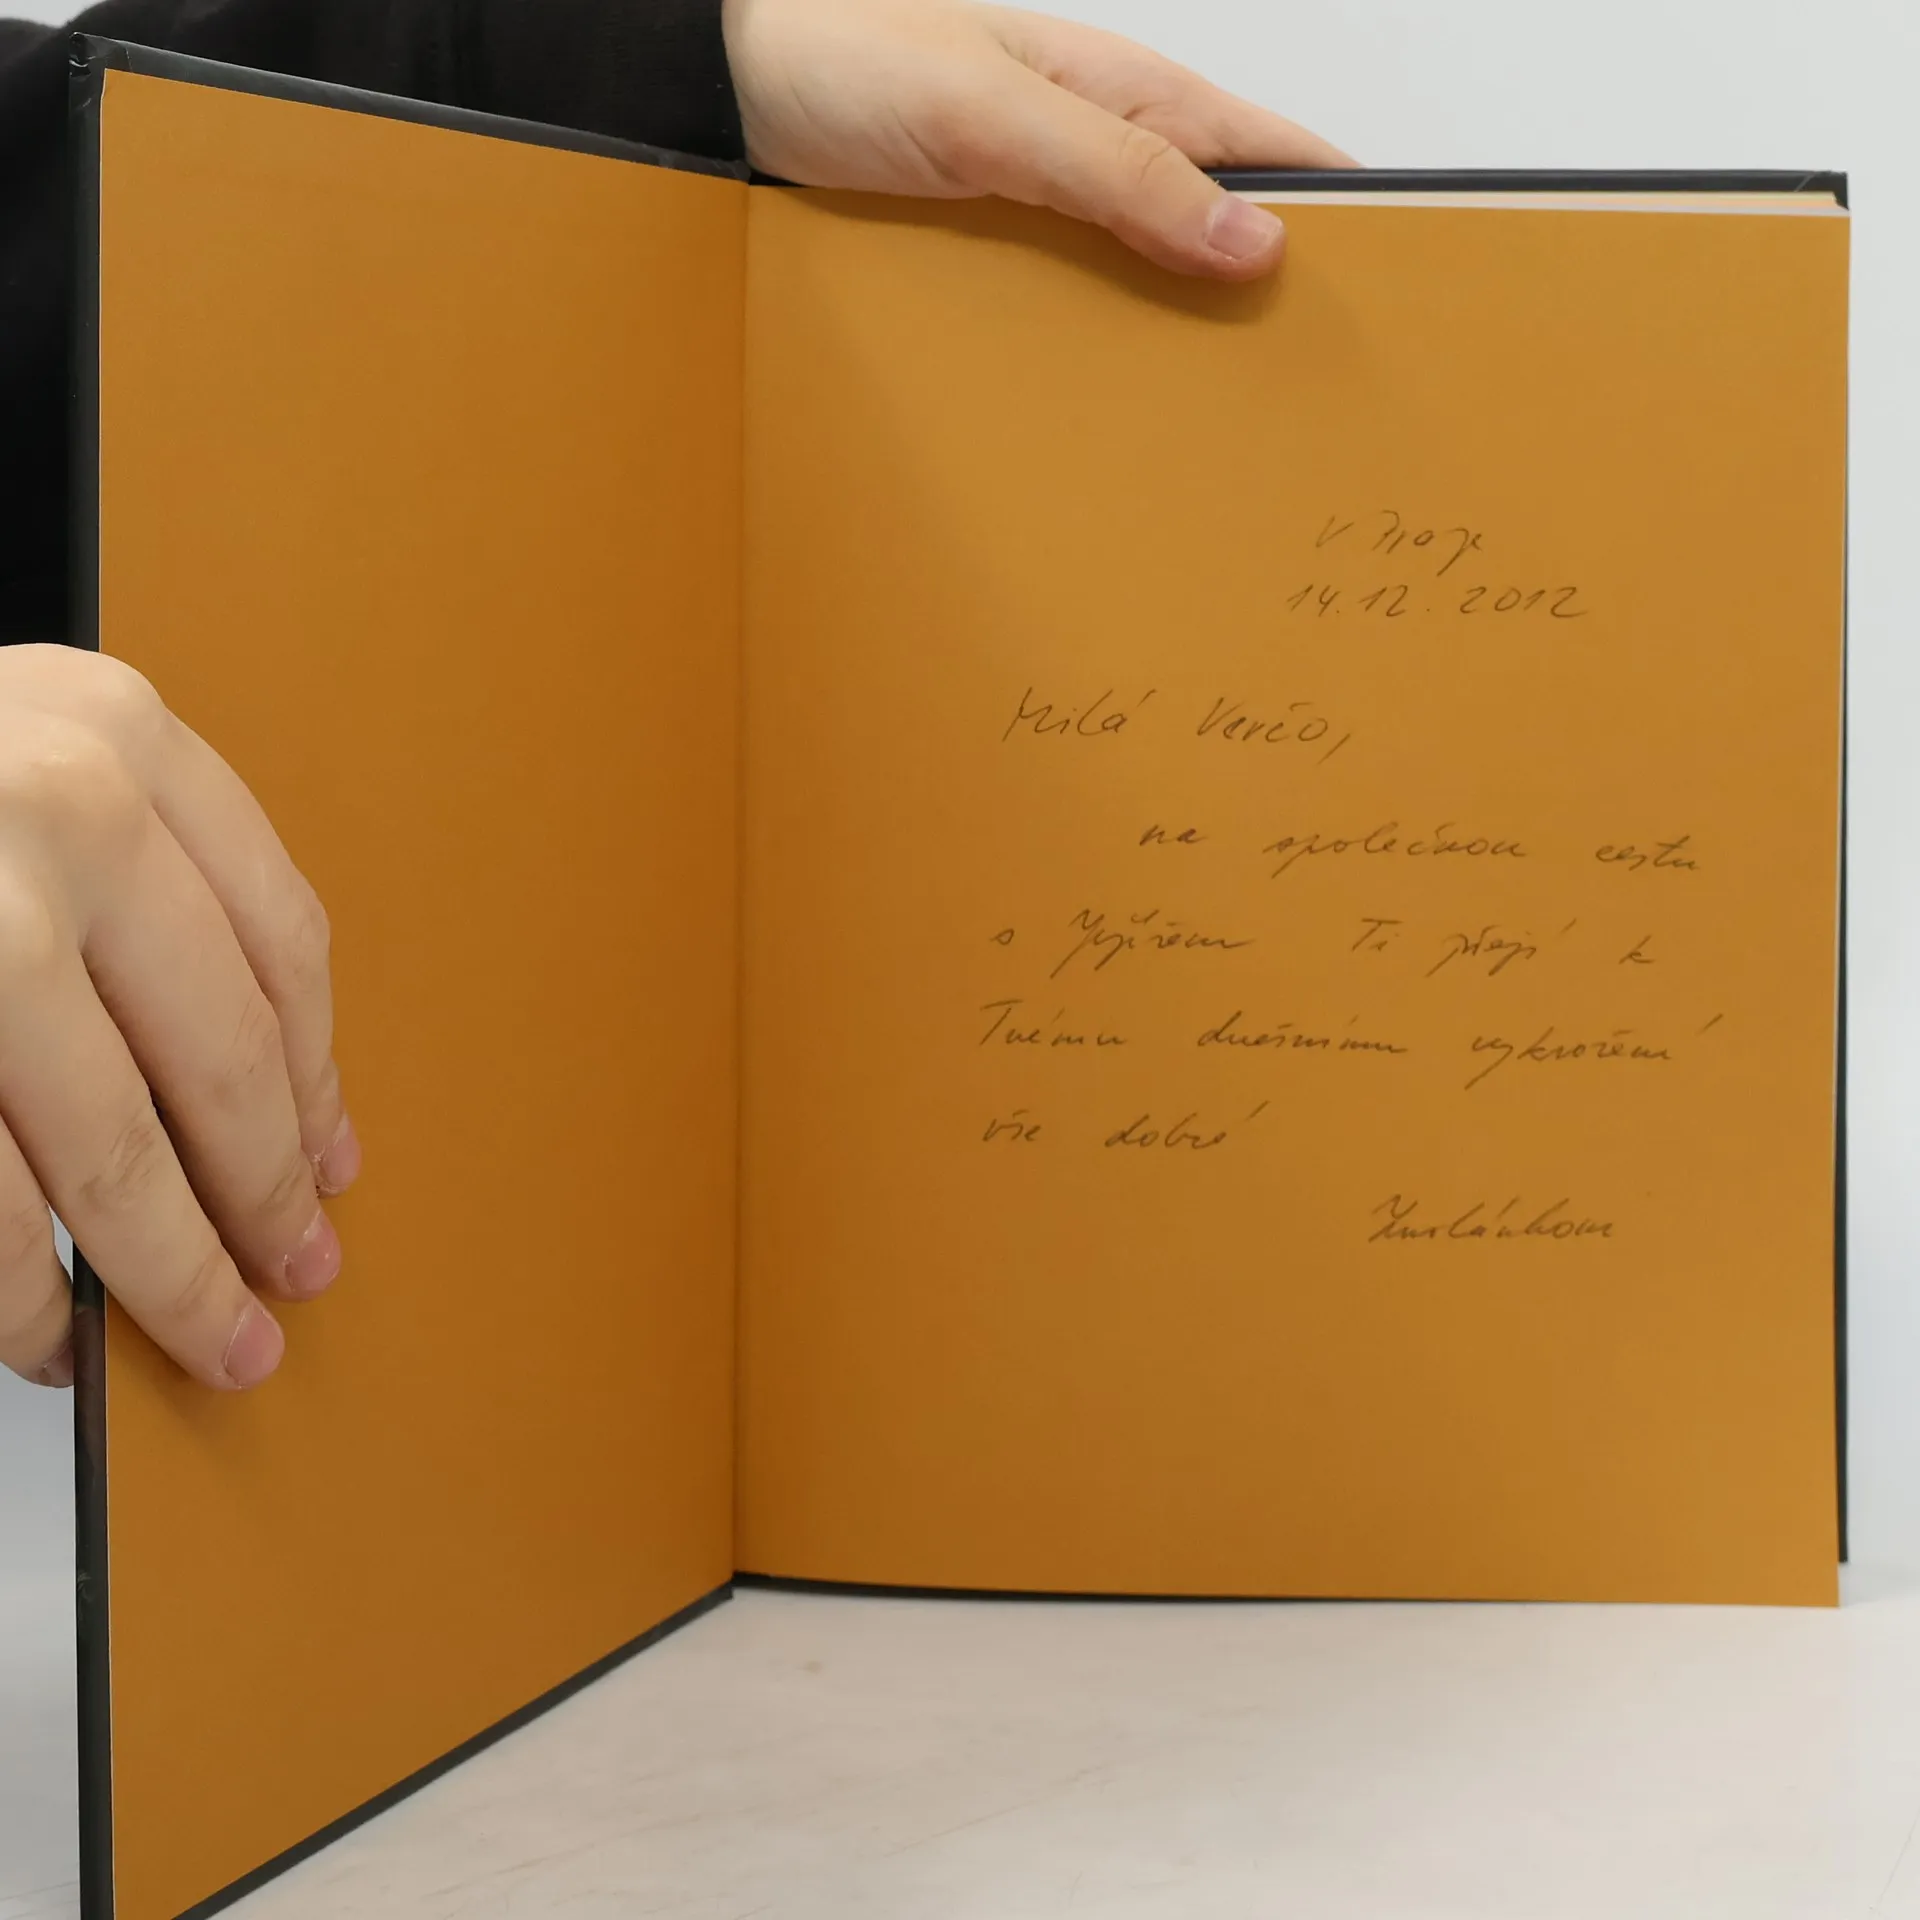 V Praze
14.12.2012
Milá Verčo,
na společnou cestu
s Ti přejí k
Tvému dnešnímu vykročení
vše dobré